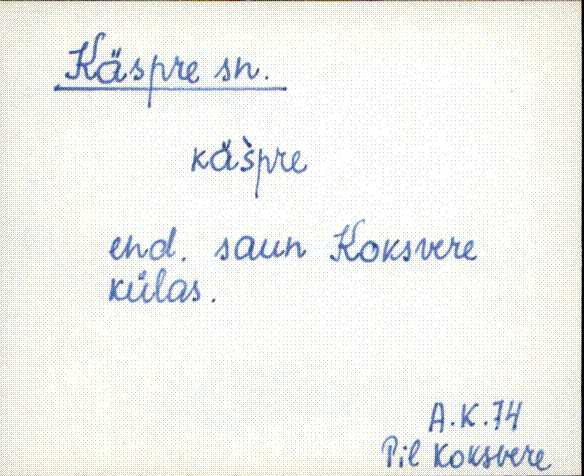 Käspre sn.
käs̀pre
end. saun Koksvere
külas.
A.K.74
Pil Koksvere